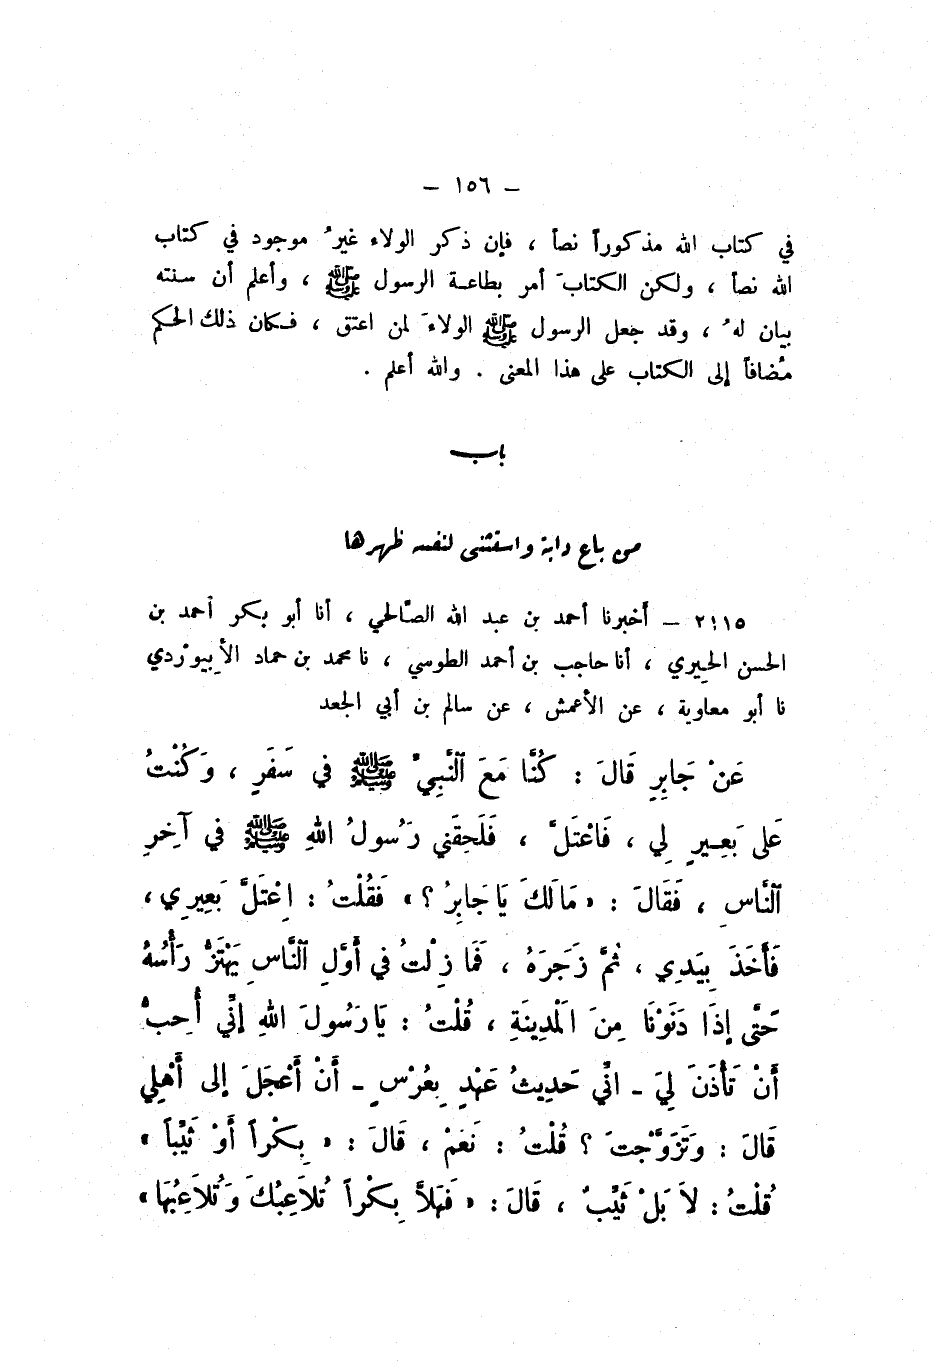 – ١٥٦ –
في كتاب الله مذكوراً نصاً ، فإن ذكر الولاء غيرُ موجود في كتاب
الله نصاً ، ولكن الكتابَ أمر بطاعة الرسول ﷺ ، وأعلم أن سنته
بيان لهُ ، وقد جعل الرسول ﷺ الولاءَ لمن اعتق ، فكان ذلك الحكم
مُضافاً إلى الكتاب على هذا المعنى . والله أعلم .
باب
من باع دابة واستثنى لنفسه ظهرها
٢١١٥ – أَخبرنا أحمد بن عبد الله الصَّالحي ، أنا أبو بكر أحمد بن
الحسن الحِيري ، أنا حاجب بن أحمد الطوسي ، نا محمد بن حماد الأَبِيوَرْدي
نا أبو معاوية ، عن الأعمش ، عن سالم بن أبي الجعد
عَنْ جَابِرٍ قَالَ : كُنَّا مَعَ ٱلنَّبِيِّ ﷺ في سَفَرٍ ، وَكُنْتُ
عَلى بَعِيرٍ لِي ، فَاعْتَلَّ ، فَلَحِقَني رَسُولُ اللهِ ﷺ في آخِرِ
ٱلنَّاسِ ، فَقَالَ : « مَالَكَ يَا جَابِرُ ؟ » فَقُلْتُ : اِعْتَلَّ بَعِيرِي ،
فَأَخَذَ بِيَدِي ، ثُمَّ زَجَرَهُ ، فَمَا زِلْتُ في أَوَّلِ ٱلنَّاسِ يَهْتَزُّ رَأْسُهُ
حَتَّى إِذَا دَنَوْنَا مِنَ الَمْدِينَةِ ، قُلْتُ : يَا رَسُولَ اللهِ إِنِّي أُحِبُّ
أَنْ تَأْذَنَ لِيَ ـ انِّي حَدِيثُ عَهْدٍ بِعُرْسٍ ـ أَنْ أَعْجَلَ إِلى أَهْلِي
قَالَ : وَتَزَوَّجْتَ ؟ قُلْتُ : نَعَمْ ، قَالَ : « بِكْراً أَوْ ثَيِّباً »
قُلْتُ : لاَ بَلْ ثَيِّبٌ ، قَالَ : « فَهَلاَّ بِكْراً تُلاَعِبُكَ وَتُلاَعِبُهَا »